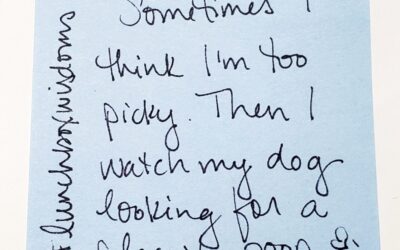 Sometimes I
think I'm too
picky. Then I
watch my dog
looking for a
#lunchboxwisdoms